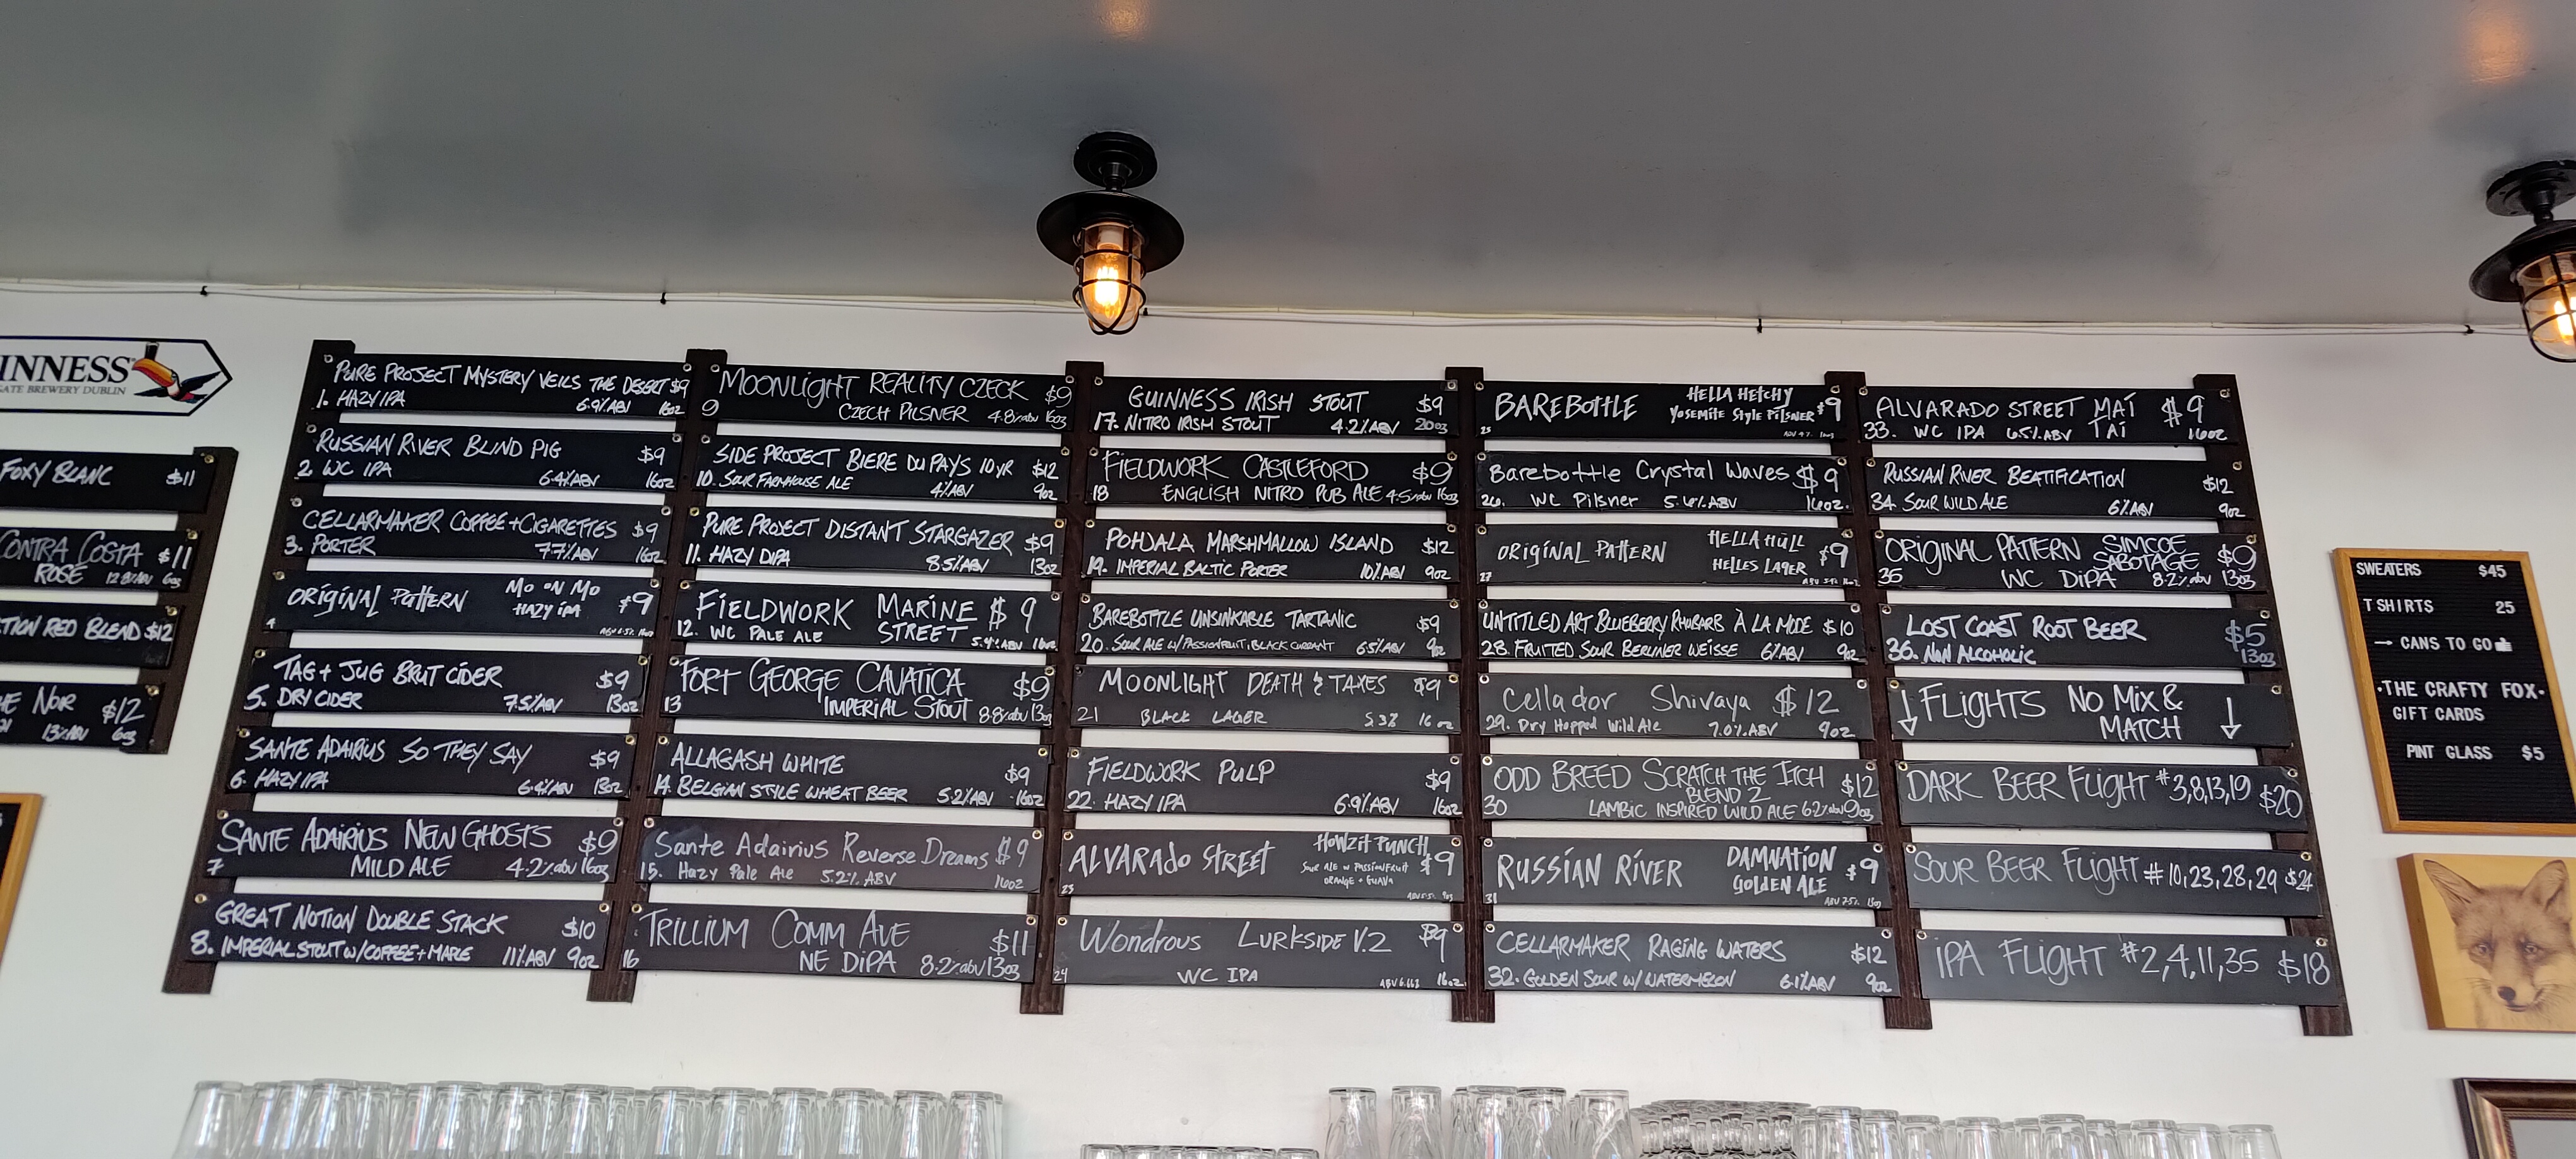 INNESS
GATE BREWERY DUBLIN
FOXY BLANC $11
CONTRA COSTA $11
ROSÉ 12.8%ABV 6oz
TION RED BLEND $12
NOIR $12
13%ABV 6oz
PURE PROJECT MYSTERY VEILS THE DESERT $9
1. HAZY IPA 6.9%ABV 16oz
RUSSIAN RIVER BLIND PIG $9
2. WC IPA 6.4%ABV 16oz
CELLARMAKER COFFEE + CIGARETTES $9
3. PORTER 7.7%ABV 16oz
ORIGINAL PATTERN MO ON MO $9
HAZY IPA
4 ABV 6.5% 16oz
TAG + JUG BRUT CIDER $9
5. DRY CIDER 7.5%ABV 13oz
SANTE ADAIRIUS SO THEY SAY $9
6. HAZY IPA 13oz
SANTE ADAIRIUS NEW GHOSTS $9
7 MILD ALE 4.2%abv 16oz
GREAT NOTION DOUBLE STACK $10
8. IMPERIAL STOUT W/COFFEE+MAPLE 11%ABV 9oz
MOONLIGHT REALITY CZECK $9
9 CZECH PILSNER 4.8%abv 16oz
SIDE PROJECT BIERE DU PAYS 10YR $12
10. SOUR FARMHOUSE ALE 4%ABV 9oz
PURE PROJECT DISTANT STARGAZER $9
11. HAZY DIPA 8.5%ABV 13oz
FIELDWORK MARINE $9
12. WC PALE ALE STREET 5.4%ABV 16oz
FORT GEORGE CAVATICA $9
13 IMPERIAL STOUT 8.8%abv 13oz
ALLAGASH WHITE $9
14. BELGIAN STYLE WHEAT BEER 5.2%ABV 16oz
Sante Adairius Reverse Dreams $9
15. Hazy Pale Ale 5.2% ABV 16oz
TRILLIUM COMM AVE $11
16 NE DIPA 8.2%abv 13oz
GUINNESS IRISH STOUT $9
17. NITRO IRISH STOUT 4.2%ABV 20oz
FIELDWORK CASTLEFORD $9
18 ENGLISH NITRO PUB ALE 4.5%abv 16oz
POHJALA MARSHMALLOW ISLAND $12
19. IMPERIAL BALTIC PORTER 10%ABV 9oz
BAREBOTTLE UNSINKABLE TARTANIC $9
20. SOUR ALE W/PASSIONFRUIT, BLACK CURRANT 6.5%ABV 9oz
MOONLIGHT DEATH & TAXES $9
21 BLACK LAGER 5.3% 16oz
FIELDWORK PULP $9
22. HAZY IPA 6.9%ABV 16oz
ALVARADO STREET HOWZIT PUNCH $9
SOUR ALE W PASSIONFRUIT
ORANGE + GUAVA
23 ABV 5.5% 9oz
Wondrous LURKSIDE V.2 $9
24 WC IPA ABV 6.66% 16oz
BAREBOTTLE HELLA HETCHY
YOSEMITE STYLE PILSNER $9
25 ABV 4.7% 16oz
Barebottle Crystal Waves $9
26. WC Pilsner 5.6%ABV 16oz.
ORIGINAL PATTERN HELLA HÜLL $9
HELLES LAGER
27 16oz
UNTITLED ART BLUEBERRY RHUBARB À LA MODE $10
28. FRUITED SOUR BERLINER WEISSE 6%ABV 9oz
Cellador Shivaya $12
29. Dry Hopped Wild Ale 7.0%ABV 9oz
ODD BREED SCRATCH THE ITCH $12
BLEND 2
30 LAMBIC INSPIRED WILD ALE 6.2%abv 9oz
RUSSIAN RIVER DAMNATION $9
GOLDEN ALE
31 ABV 7.5% 13oz
CELLARMAKER RAGING WATERS $12
32. GOLDEN SOUR W/ WATERMELON 6.1%ABV 9oz
ALVARADO STREET MAI $9
33. WC IPA 6.5%ABV TAI 16oz
RUSSIAN RIVER BEATIFICATION $12
34. SOUR WILD ALE 6%ABV 9oz
ORIGINAL PATTERN SIMCOE $9
SABOTAGE
35 WC DIPA 8.2%abv 13oz
LOST COAST ROOT BEER $5
36. NON ALCOHOLIC 13oz
↓ FLIGHTS NO MIX & ↓
MATCH
DARK BEER FLIGHT #3,8,13,19 $20
SOUR BEER FLIGHT #10,23,28,29 $21
IPA FLIGHT #2,4,11,35 $18
SWEATERS $45
T SHIRTS 25
→ CANS TO GO
·THE CRAFTY FOX·
GIFT CARDS
PINT GLASS $5